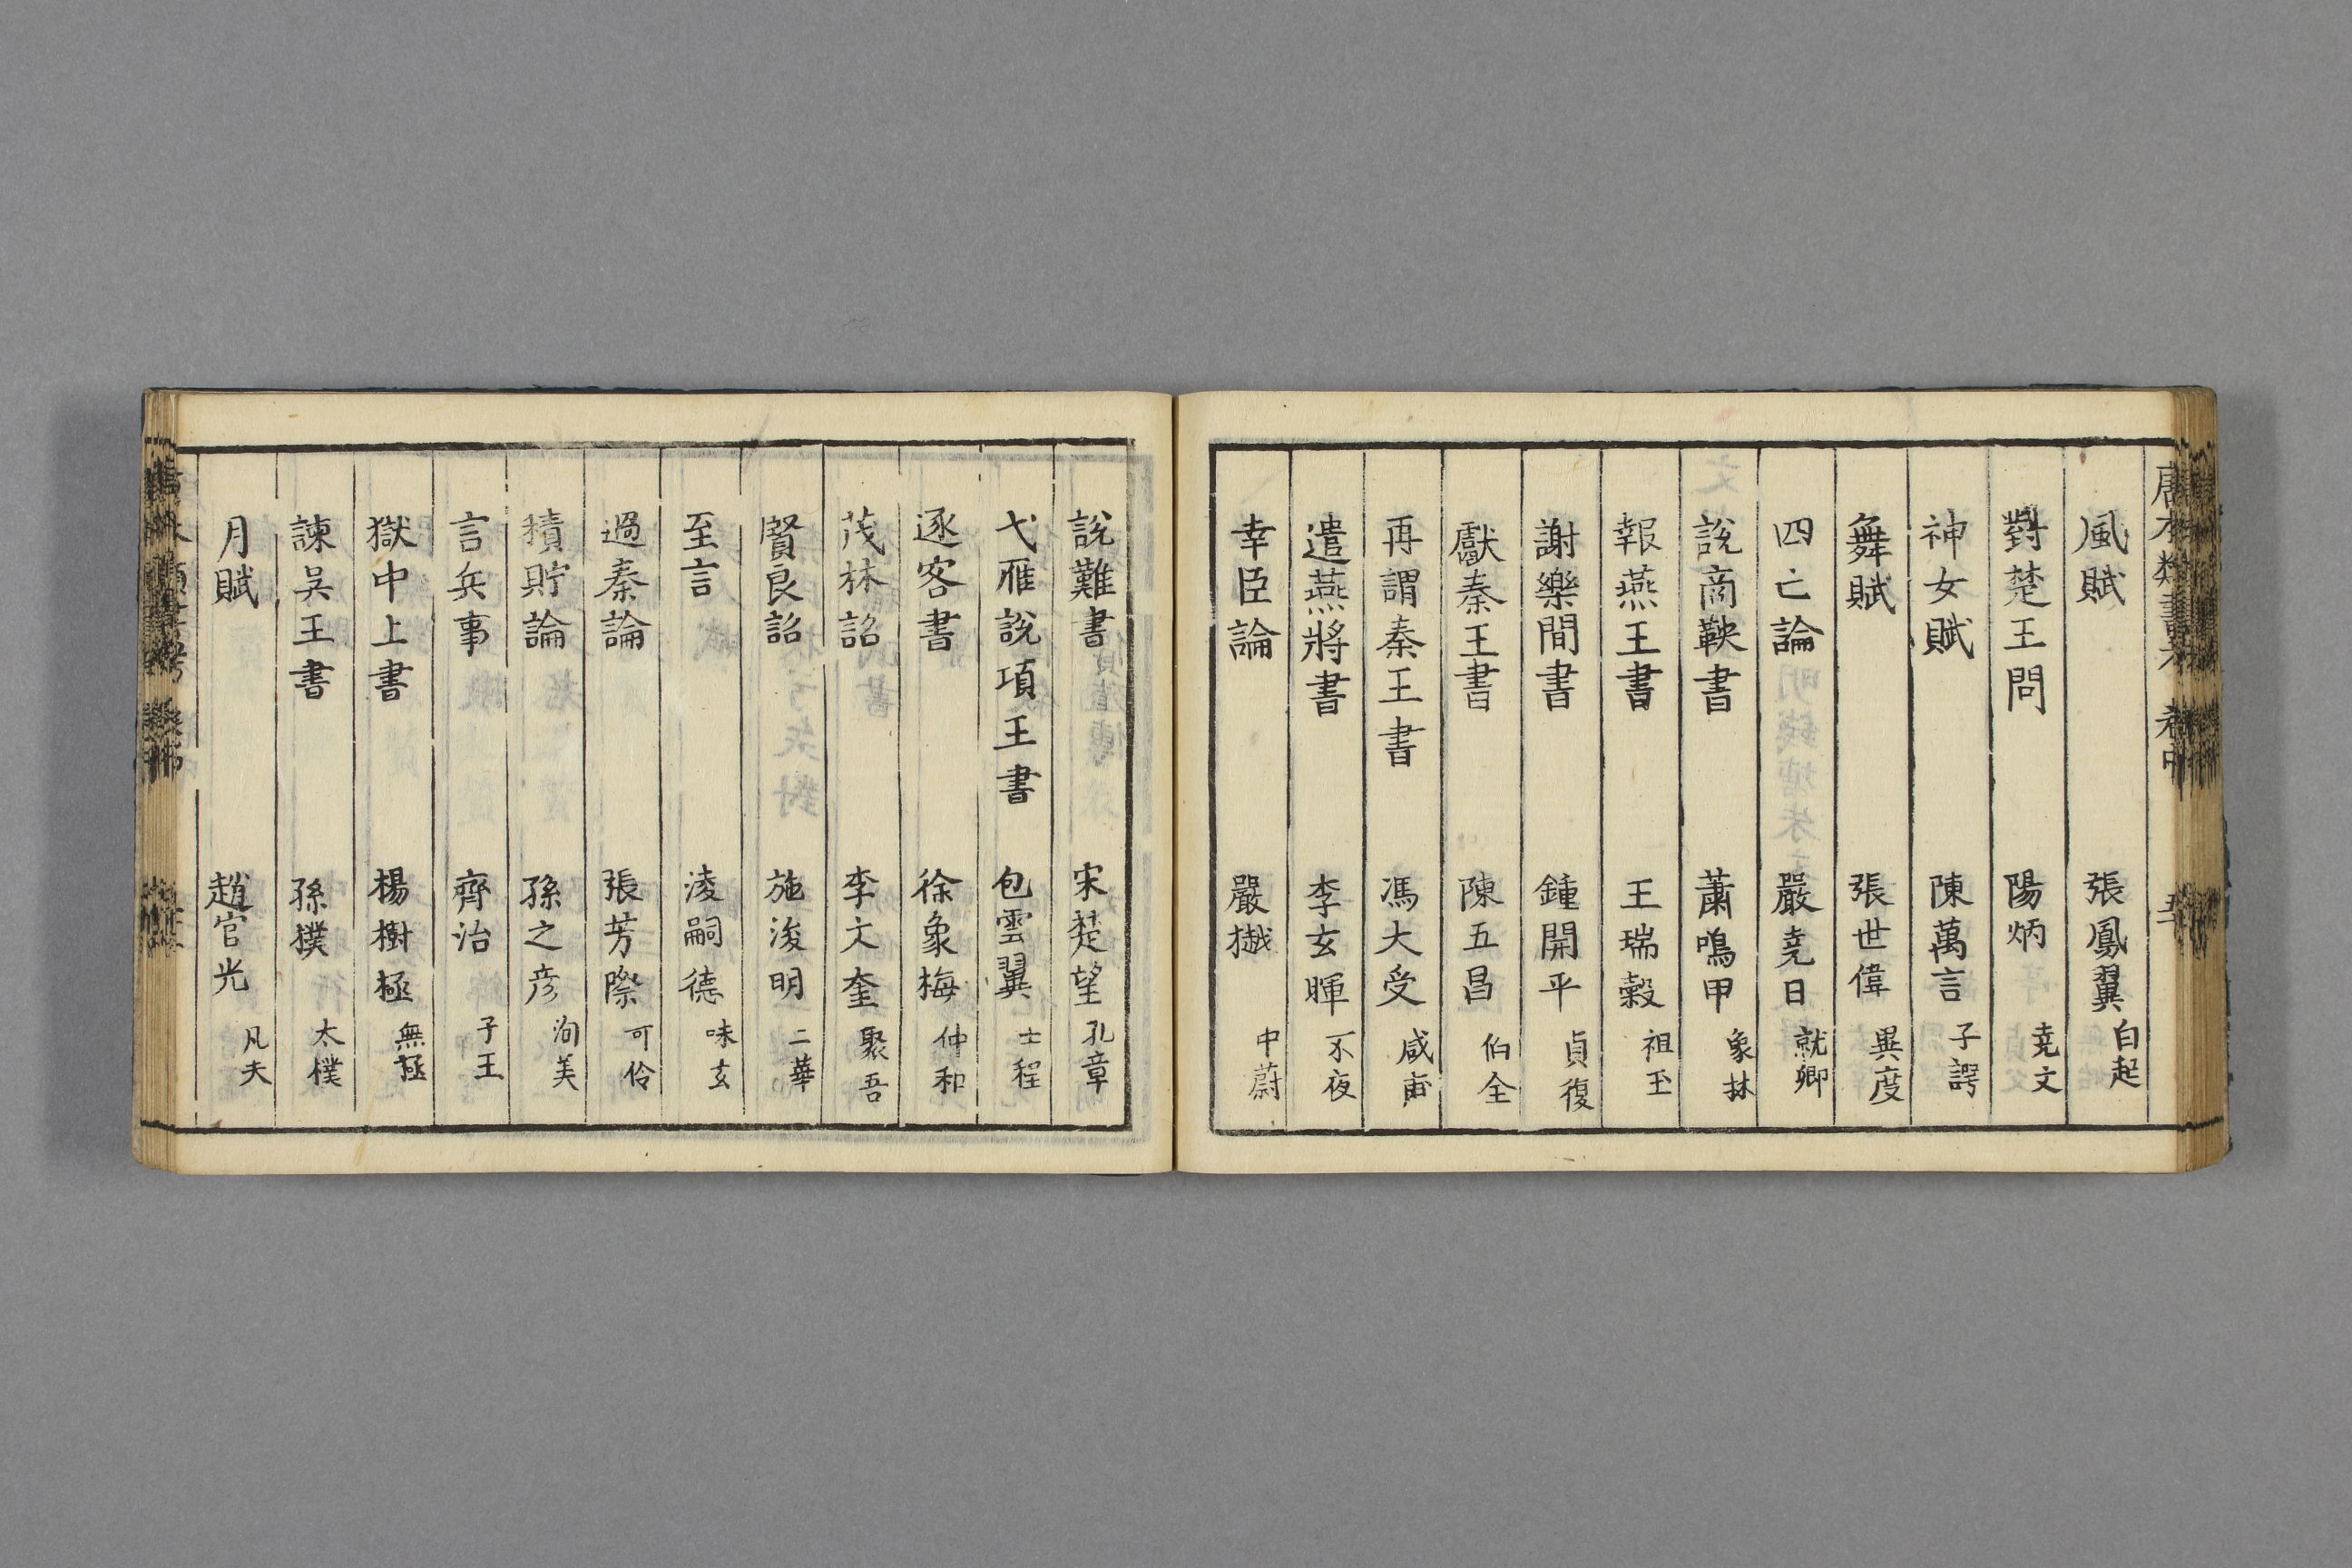 風賦 張鳳翼 白起
對楚王問 陽炳 堯文
神女賦 陳萬言 子諤
舞賦 張世偉 異度
四亡論 嚴堯日 就卿
說商鞅書 蕭鳴甲 象林
報燕王書 王瑞穀 祖玉
謝樂間書 鍾開平 貞復
獻秦王書 陳五昌 伯全
再謂秦王書 馮大受 咸甫
遣燕將書 李玄暉 不夜
幸臣論 嚴樾 中蔚
說難書 宋楚望 孔章
弋雁說項王書 包雲翼 士程
逐客書 徐象梅 仲和
茂林詔 李文奎 聚吾
賢良詔 施浚明 二華
至言 淩嗣德 味玄
過秦論 張芳際 可伶
積貯論 孫之彥 洵美
言兵事 齊治 子王
獄中上書 楊樹極 無極
諫吳王書 孫樸 太樸
月賦 趙宦光 凡夫